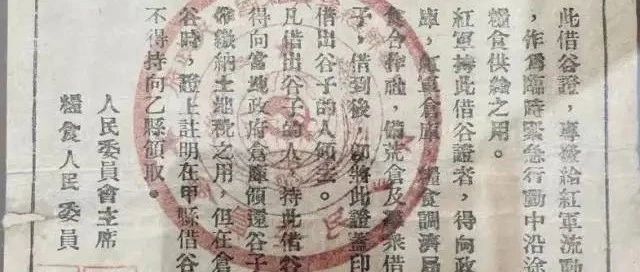 此借谷證，專發給紅軍流動
，作爲臨時緊急行動中沿途
糧食供給之用。
紅軍持此借谷證者，得向政
庫，紅軍倉庫，糧食調濟局
食合作社，備荒倉及羣衆借
子，借到後，即將此證蓋印
借出谷子的人領去。
凡借出谷子的人，持此借谷
得向當地政府倉庫領還谷子
作繳納土地稅之用，但在倉
谷時，證上註明在甲縣借谷
不得持向乙縣領取。
人民委員會主席
糧食人民委員